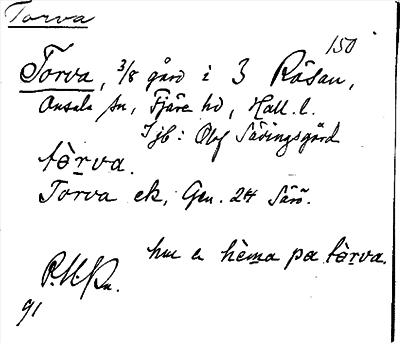 Torva
150
Torva, 3/8 gård i 3 Råsan,
Onsala sn, Fjäre hd, Hall. l.
Ijb: Olof Sädingsgård
tèrva.
Torva ek, Gen. 24 Särö.
hu e hèma pa tèrva.
91